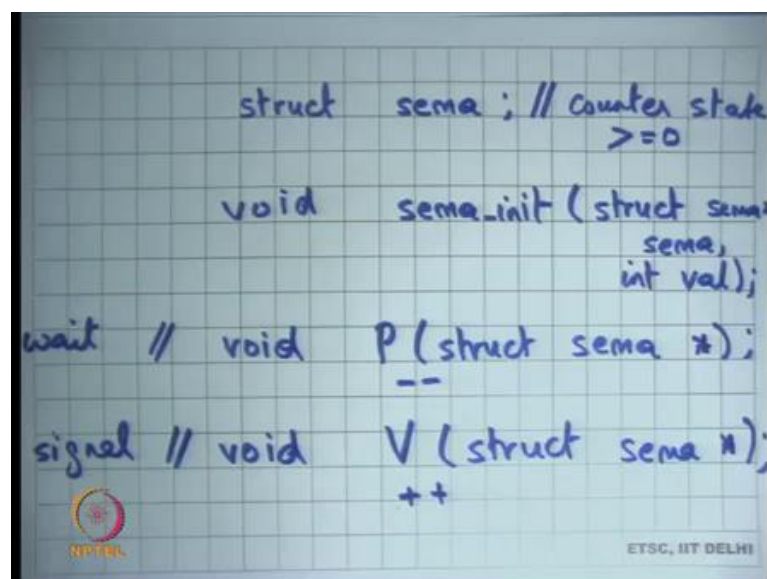 struct sema ; // counter state
>=0
void sema_init ( struct sema*
sema,
int val);
wait // void P ( struct sema * );
--
signal // void V ( struct sema * );
++
NPTEL
ETSC, IIT DELHI